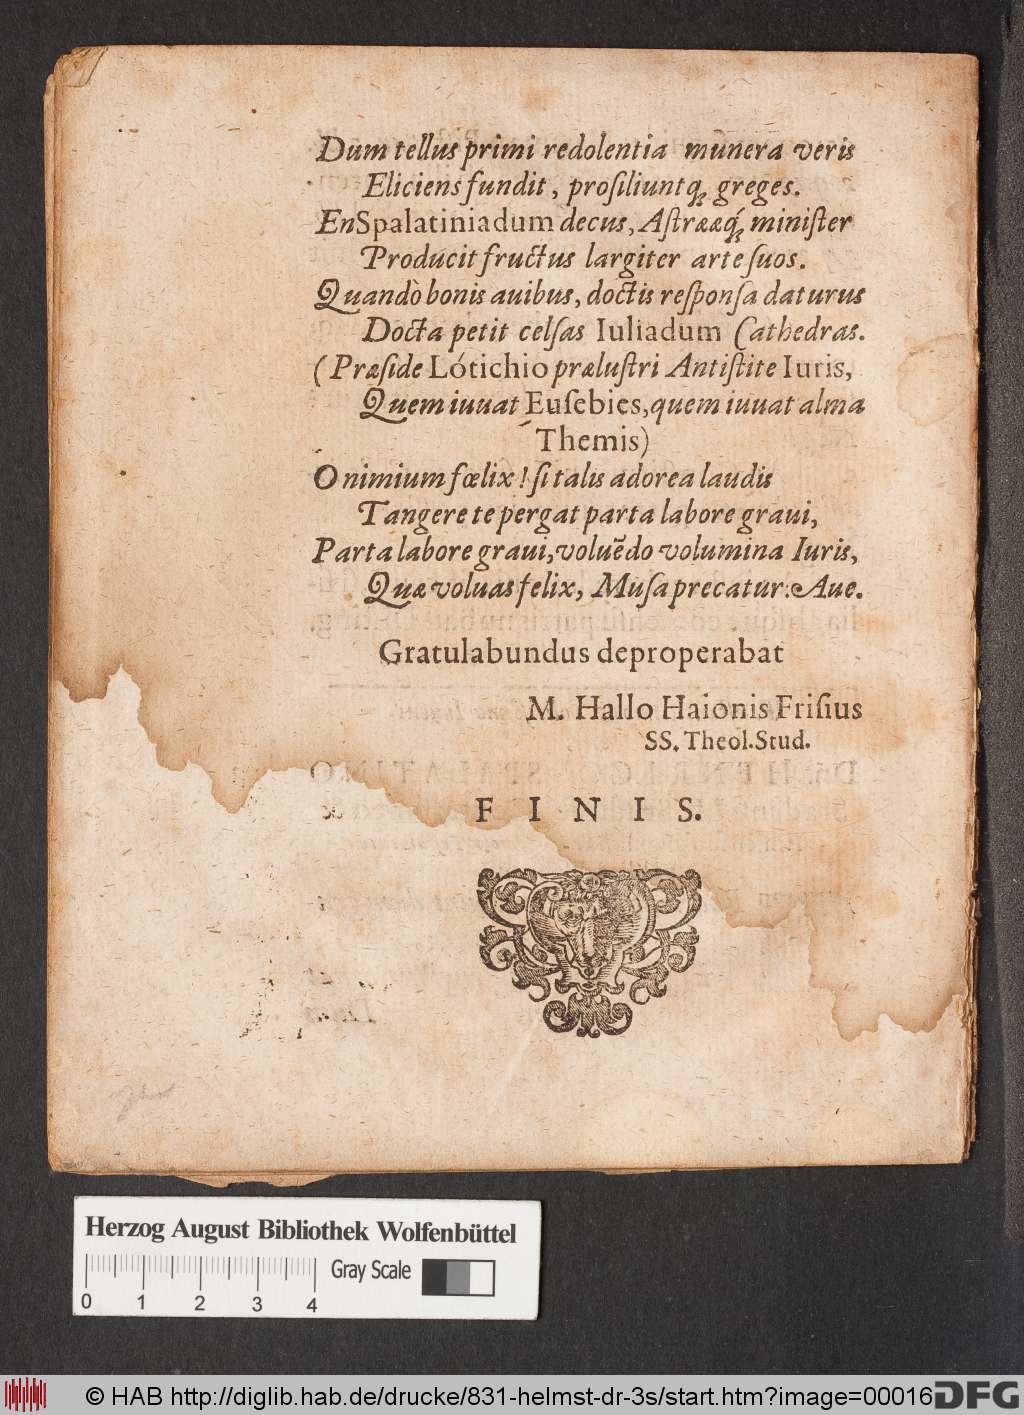 Dum tellus primi redolentia munera veris
Eliciens fundit, proſiliuntq́ꝫ greges.
En Spalatiniadum decus, Aſtrææq́ꝫ miniſter
Producit fructus largiter arte ſuos.
Quandò bonis auibus, doctis reſponſa daturus
Docta petit celſas Iuliadum Cathedras.
(Præſide Lótichio præluſtri Antiſtite Iuris,
Quem iuuat Euſebies, quem iuuat alma
Themis)
O nimium fœlix! ſi talis adorea laudis
Tangere te pergat parta labore graui,
Parta labore graui, voluẽdo volumina Iuris,
Quæ voluas felix, Muſa precatur: Aue.
Gratulabundus deproperabat
M. Hallo Haionis Friſius
SS. Theol. Stud.
F I N I S.
Herzog August Bibliothek Wolfenbüttel
Gray Scale
0 1 2 3 4
© HAB http://diglib.hab.de/drucke/831-helmst-dr-3s/start.htm?image=00016
DFG